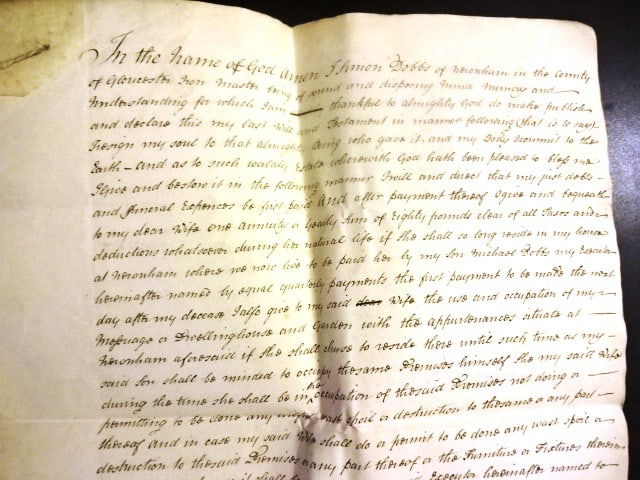 In the Name of God Amen I Simon Dobbs of Newnham in the County
of Gloucester Iron Master being of sound and disposing Mind Memory and
Understanding for which I am thankful to almighty God do make publish
and declare this my last Will and Testament in manner following that is to say I
Resign my soul to that almighty Being who gave it and my Body I commit to the
Earth - and as to such worldly Estate wherewith God hath been pleased to bless me
I Give and bestow it in the following manner I will and direct that my just debts
and Funeral Expences be first paid And after payment thereof I give and bequeath
to my dear Wife one annuity or yearly Sum of Eighty pounds clear of all Taxes and
deductions whatsoever during her natural life if she shall so long reside in my house
at Newnham where we now live to be paid her by my Son Michael Dobbs my Executor
hereinafter named by equal quarterly payments the first payment to be made the next
day after my decease I also give to my said dear Wife the use and occupation of my
Messuage or Dwellinghouse and Garden with the appurtenances situate at
Newnham aforesaid if she shall chuse to reside there until such time as my
said Son shall be minded to occupy the same Premises himself she my said Wife
during the time she shall be in the occupation of the said Premises not doing or
permitting to be done any wast spoil or destruction to the same or any part
thereof and in case my said Wife shall do or permit to be done any wast spoil or
destruction to the said Premises or any part thereof or the Furniture or Fixtures therein
Executor hereinafter named to